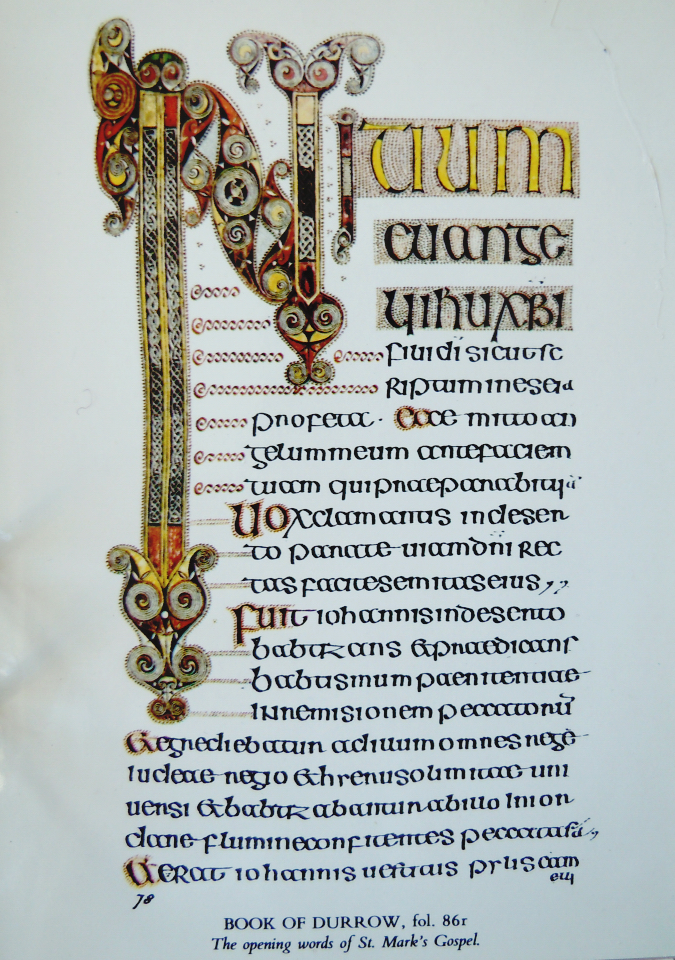 INITIUM
euange
lii ihu xpi
filii di sicut sc
riptum in esei a
profeta. Ecce mitto an
gelum meum ante faciem
tuam qui praeparabit ui
Uox clamantis in desen
to parate uiam dni rec
tas facite semitas eius
Fuit iohannis in desento
babtizans & praedicans
babtismum paenitentiae
in remisionem peccatorū
& egrediebatur ad illum omnes regē
iudeae regio & hierusolimitae uni
uersi & babtizabantur ab illo in ior
dane flumine confitentes peccata sua
& erat iohannis uestitus pilis cam
eli
78
BOOK OF DURROW, fol. 86r
The opening words of St. Mark's Gospel.